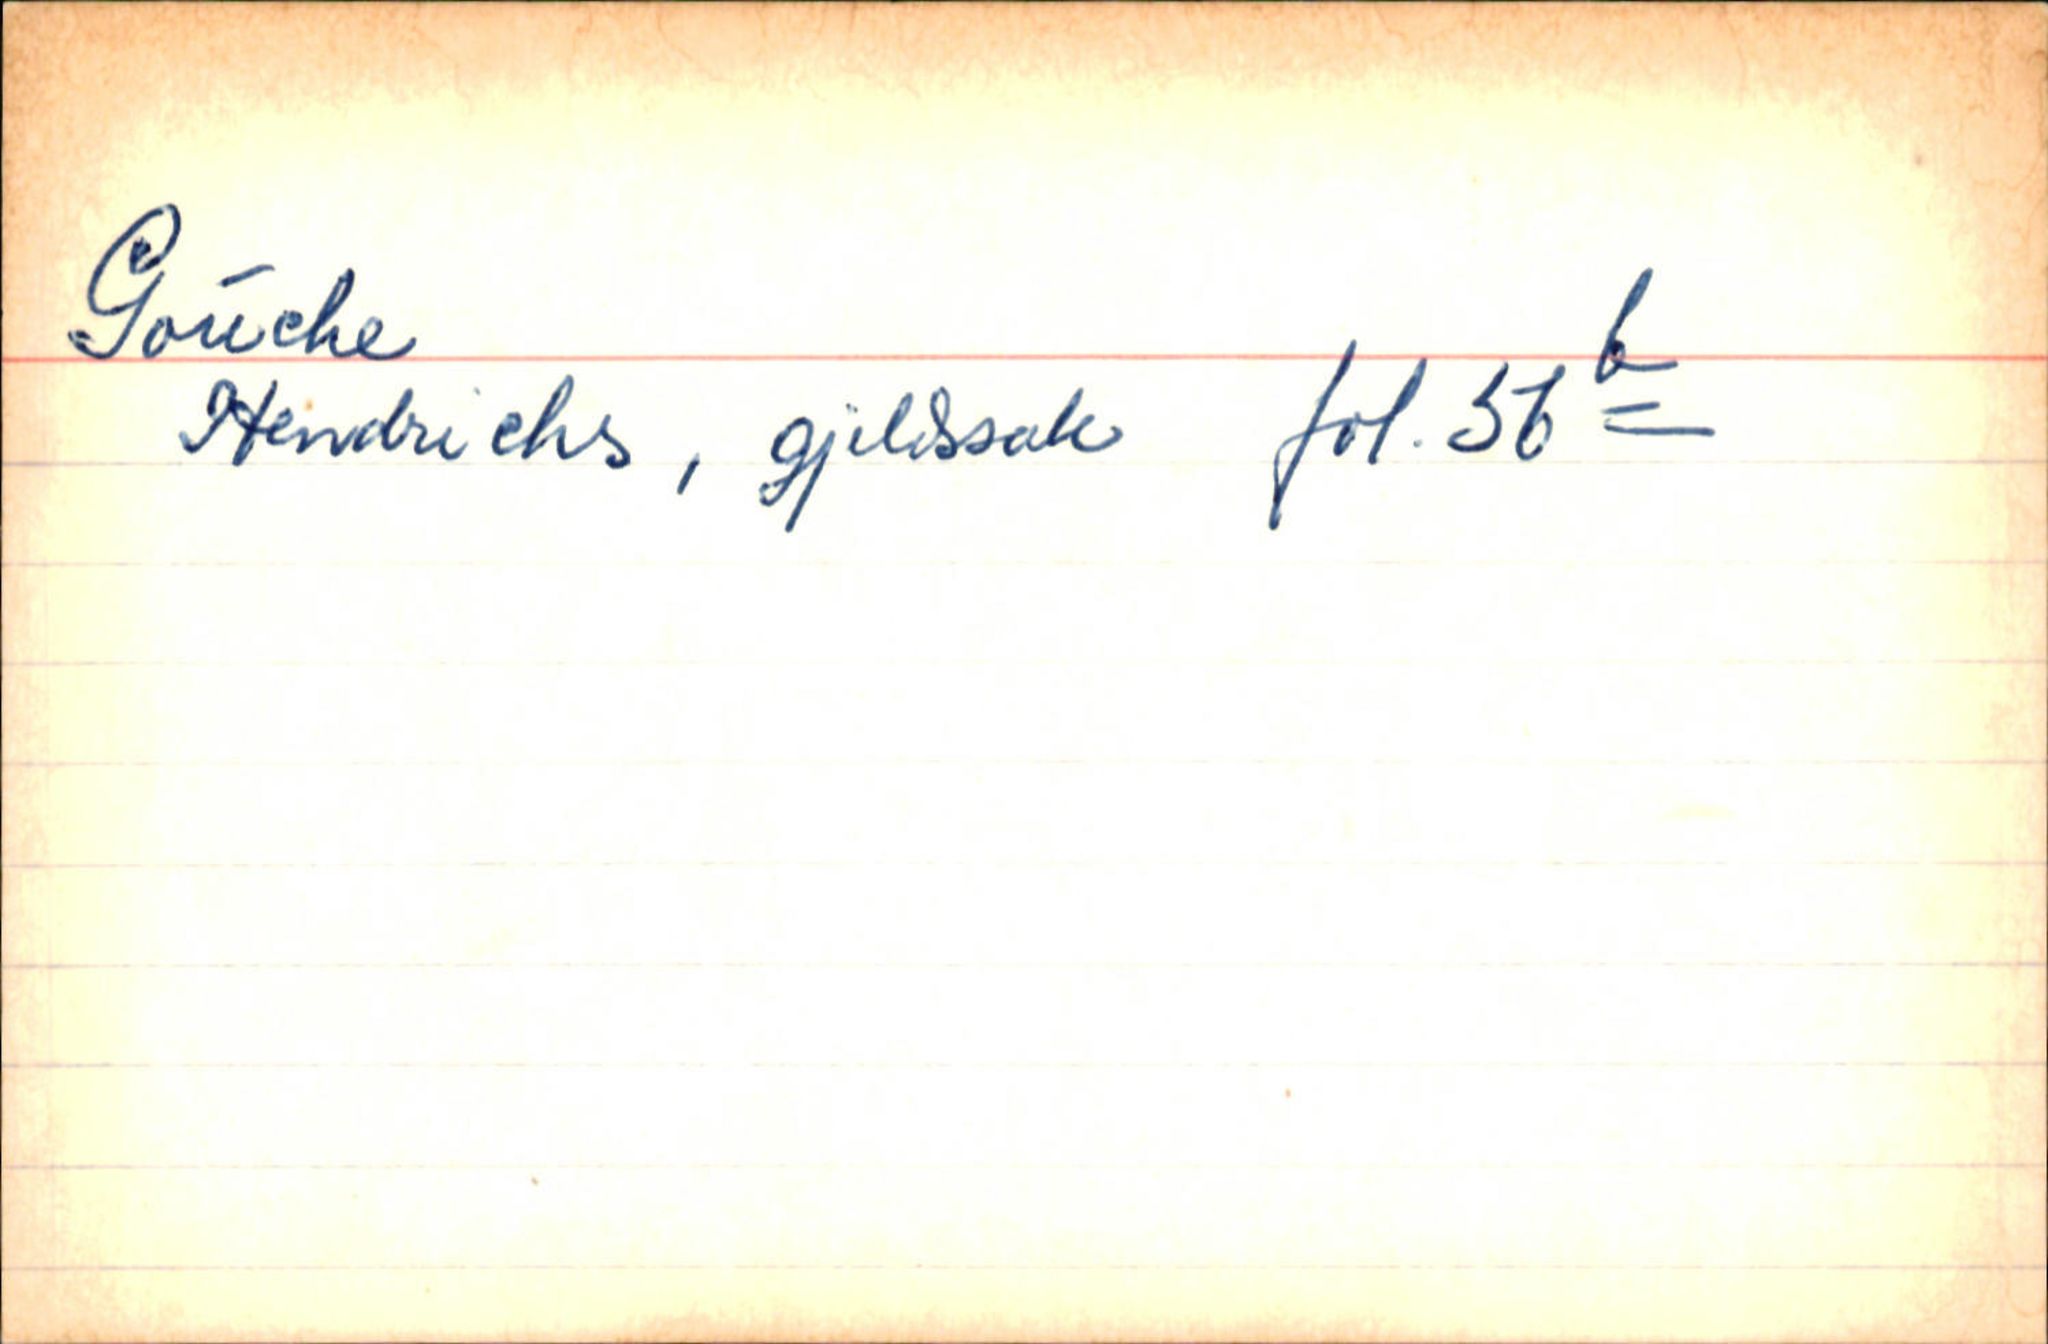 Goúche
Hendrichs, gjeldssak fol. 56 b